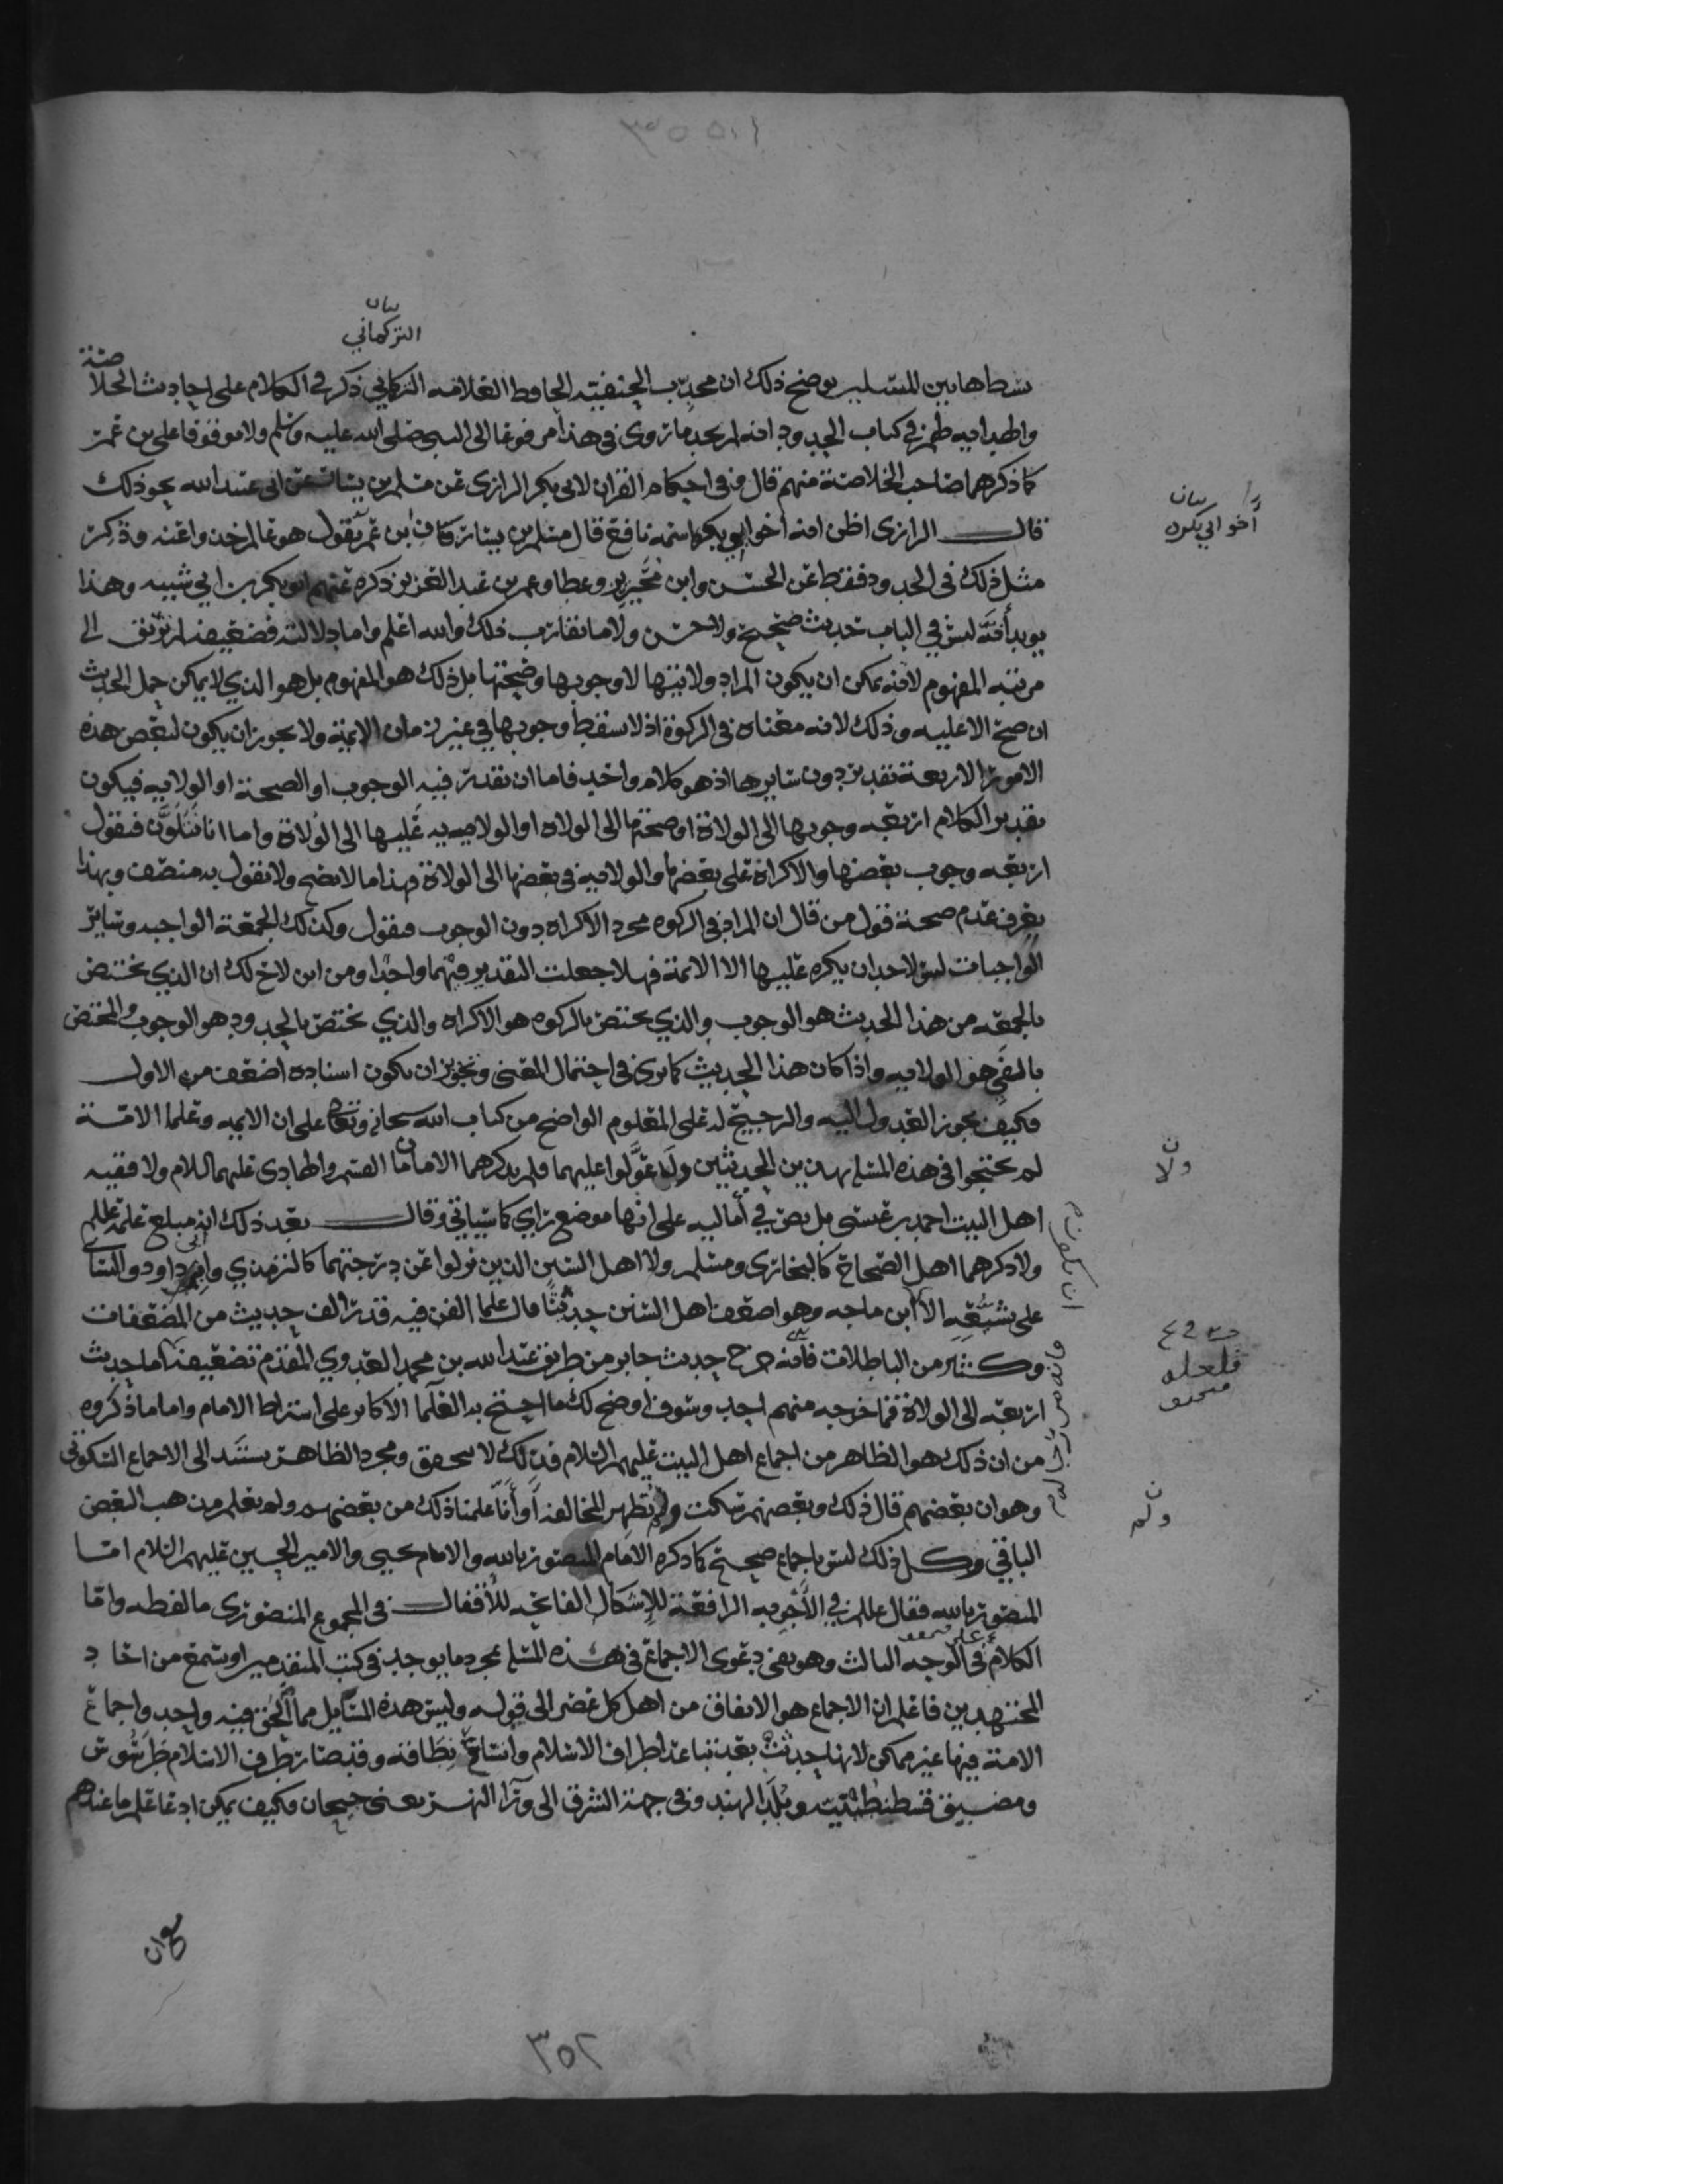 بيان
التركماني
بشطاهابين للمتسلين يوضح ذلك ان محدث الحنفية الحافظ العلامه التركماني ذكر في الكلام على احاديث الخلاصة
في كتاب الحدود انه لم يجد ما روى في هذا مرفوعا الى النبي صلى الله عليه وسلم ولا موقوفا على بن عمر
كما ذكرهما صاحب الخلاصة منهم قال وفي احكام القران لابي بكر الرازي عن مسلم بن يسار عن ابي عبد الله نحو ذلك
قال الرازي اظن انه اخو ابي بكره اسمه نافع قال مسلم بن يسار كان ابن عمر يقول هو عالم فخذوا عنه وذكر
مثل ذلك في الحدود فقط عن الحسن وابن محيريز وعطا وعمر بن عبد العزيز ذكره عنهم ابو بكر بن ابي شيبه وهذا
يويد أنه ليس في الباب حديث صحيح ولا حسن ولا ما يقارب ذلك والله اعلم واما دلالته فضعيفه لم ترتق الى
مرتبه المفهوم لانه يمكن ان يكون المراد ولايتها لا وجوبها وصحتها بل ذلك هو المفهوم بل هو الذي لا يمكن حمل الحديث
ان صح الا عليه وذلك لانه معناه في الزكوة اذ لا يسقط وجوبها في غير زمان الايمة ولا يجوز ان يكون لبعض هذه
الامور الاربعة تقدير دون سايرها اذ هو كلام واحد فاما ان نقدر فيه الوجوب او الصحة او الولايه فيكون
تقدير الكلام اربعه وجوبها الى الولاة او صحتها الى الولاه او الولايه عليها الى الولاة واما انا نتلون فنقول
اربعه وجوب بعضها والاكراه على بعضها والولايه في بعضها الى الولاة فهذا ما لا يصح ولا نقول به منصف وبهذا
يعرف عدم صحة قول من قال ان المراد في الزكوه مجرد الاكراه دون الوجوب فنقول وكذلك الجمعة الواجبه وساير
الواجبات ليس لاحد ان يكره عليها الا الايمة فهلا جعلت التقدير فيهما واحدا ومن اين لاح لك ان الذي يختص
بالجمعه من هذا الحديث هو الوجوب والذي يختص بالزكوه هو الاكراه والذي يختص بالحدود هو الوجوب والمختص
بالفي هو الولايه واذا كان هذا الحديث كما ترى في احتمال المعنى وتجويز ان يكون اسناده اضعف من الاول
فكيف يجوز العدول اليه والترجيح له على المعلوم الواضح من كتاب الله سبحانه وتعالى على ان الايمه وعلما الامة
لم يحتجوا في هذه المسله بهذين الحديثين ولا عولوا عليهما ولم يذكرهما الامامان القسم والهادي عليهما السلام ولا فقيه
اهل البيت احمد بن عيسى بل نص في أماليه على انها موضع راي كما سياتي وقال بعد ذلك انه مبلغ علمه
ولا ذكرهما اهل الصحاح كالبخاري ومسلم ولا اهل السنن الذين نزلوا عن درجتهما كالترمذي وابي داود والنساي
على تشيعه الا ابن ماجه وهو اضعف اهل السنن حديثا قال علما الفن فيه قدر الف حديث من المضعفات
وكثير من الباطلات فانه خرج حديث جابر من طريق عبد الله بن محمد العدوي المقدم تضعيفه اما حديث
اربعه الى الولاة فما خرجه منهم احد وسوف اوضح لك ما احتج به العلما الاكابر على اشتراط الامام واما ما ذكروه
من ان ذلك هو الظاهر من اجماع اهل البيت عليهم السلام فذلك لا يتحقق ومجرد الظاهر يستند الى الاجماع السكوتي
وهو ان بعضهم قال ذلك وبعضهم سكت ولم تظهر المخالفه أو أنا علمنا ذلك من بعضهم ولم نعلم مذهب البعض
الباقي وكل ذلك ليس باجماع صحيح كما ذكره الامام المنصور بالله والامام يحيى والامير الحسين عليهم السلام اما
المنصور بالله فقال في الأجوبه الرافعة للاشكال الفاتحه للأقفال في المجموع المنصوري ما لفظه واما
الكلام في الوجه الثالث وهو يعني دعوى الاجماع في هذه المسله بمجرد ما يوجد في كتب المتقدمين او يسمع من احاد
المجتهدين فاعلم ان الاجماع هو الاتفاق من اهل كل عصر الى قوله وليس هذه المسايل مما الحق فيه واحد واجماع
الامة فيها غير ممكن لانها حدثت بعد تباعد اطراف الاسلام واتساع نطاقه وقد صار طرف الاسلام طرسوس
ومضيق قسطنطينيه وبلد الهند وفي جهة الشرق الى ورا النهر يعنى جيحان فكيف يمكن ادعا علم ما عندهم
بيان
أخو ابي بكره
ن
ولا
ن
ولم
٣٥٢